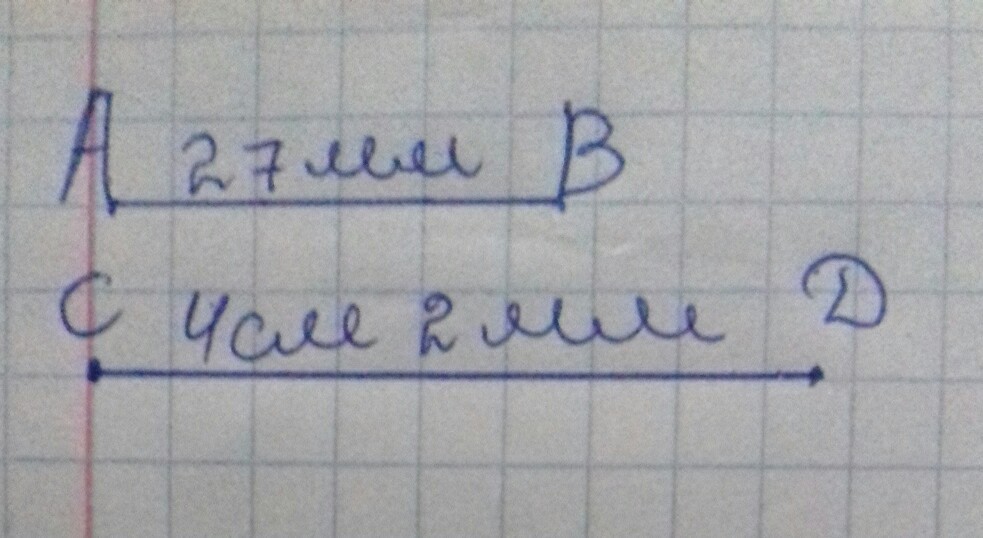 A 27мм B
C 4см 2мм D